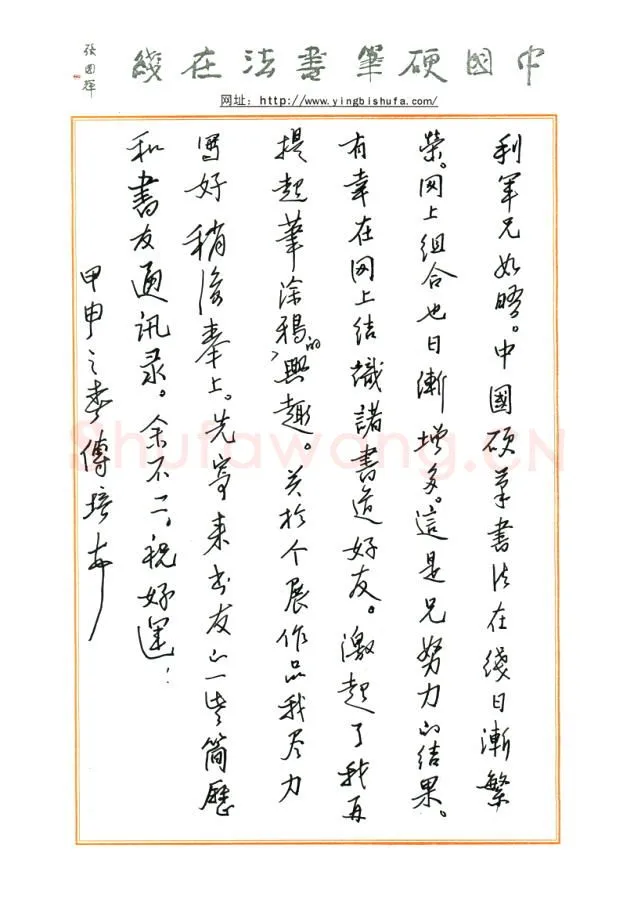 中國硬筆書法在綫
張國輝
网址：http://www.yingbishufa.com/
利軍兄如晤。中國硬筆書法在綫日漸繁
榮。网上組合也日漸增多。這是兄努力的结果。
有幸在网上结識諸書道好友。激起了我再
提起筆涂鴉的興趣。关於个展作品我尽力
写好稍後奉上。先寄来书友的一些简歷
和書友通讯录。余不二，祝好運！
甲申之春傅培
Shufawang.CN